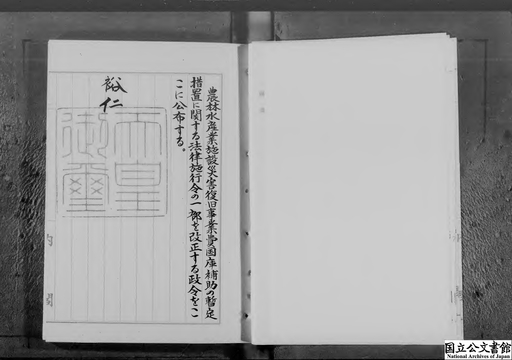 農林水産業施設災害復旧事業費国庫補助の暫定
措置に関する法律施行令の一部を改正する政令をこ
こに公布する。
裕仁
天皇
御璽
国立公文書館
National Archives of Japan